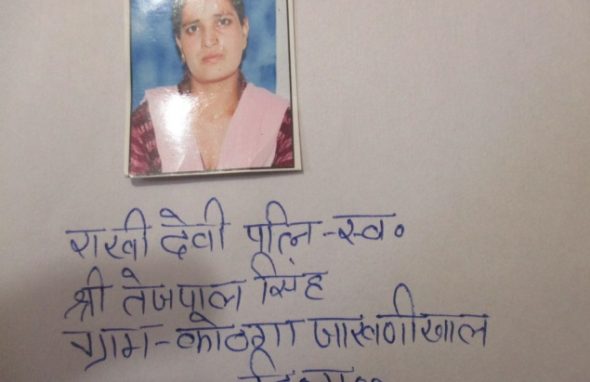 राखी देवी पत्नि-स्व०
श्री तेजपाल सिंह
ग्राम-कोठगा जाखणीखाल